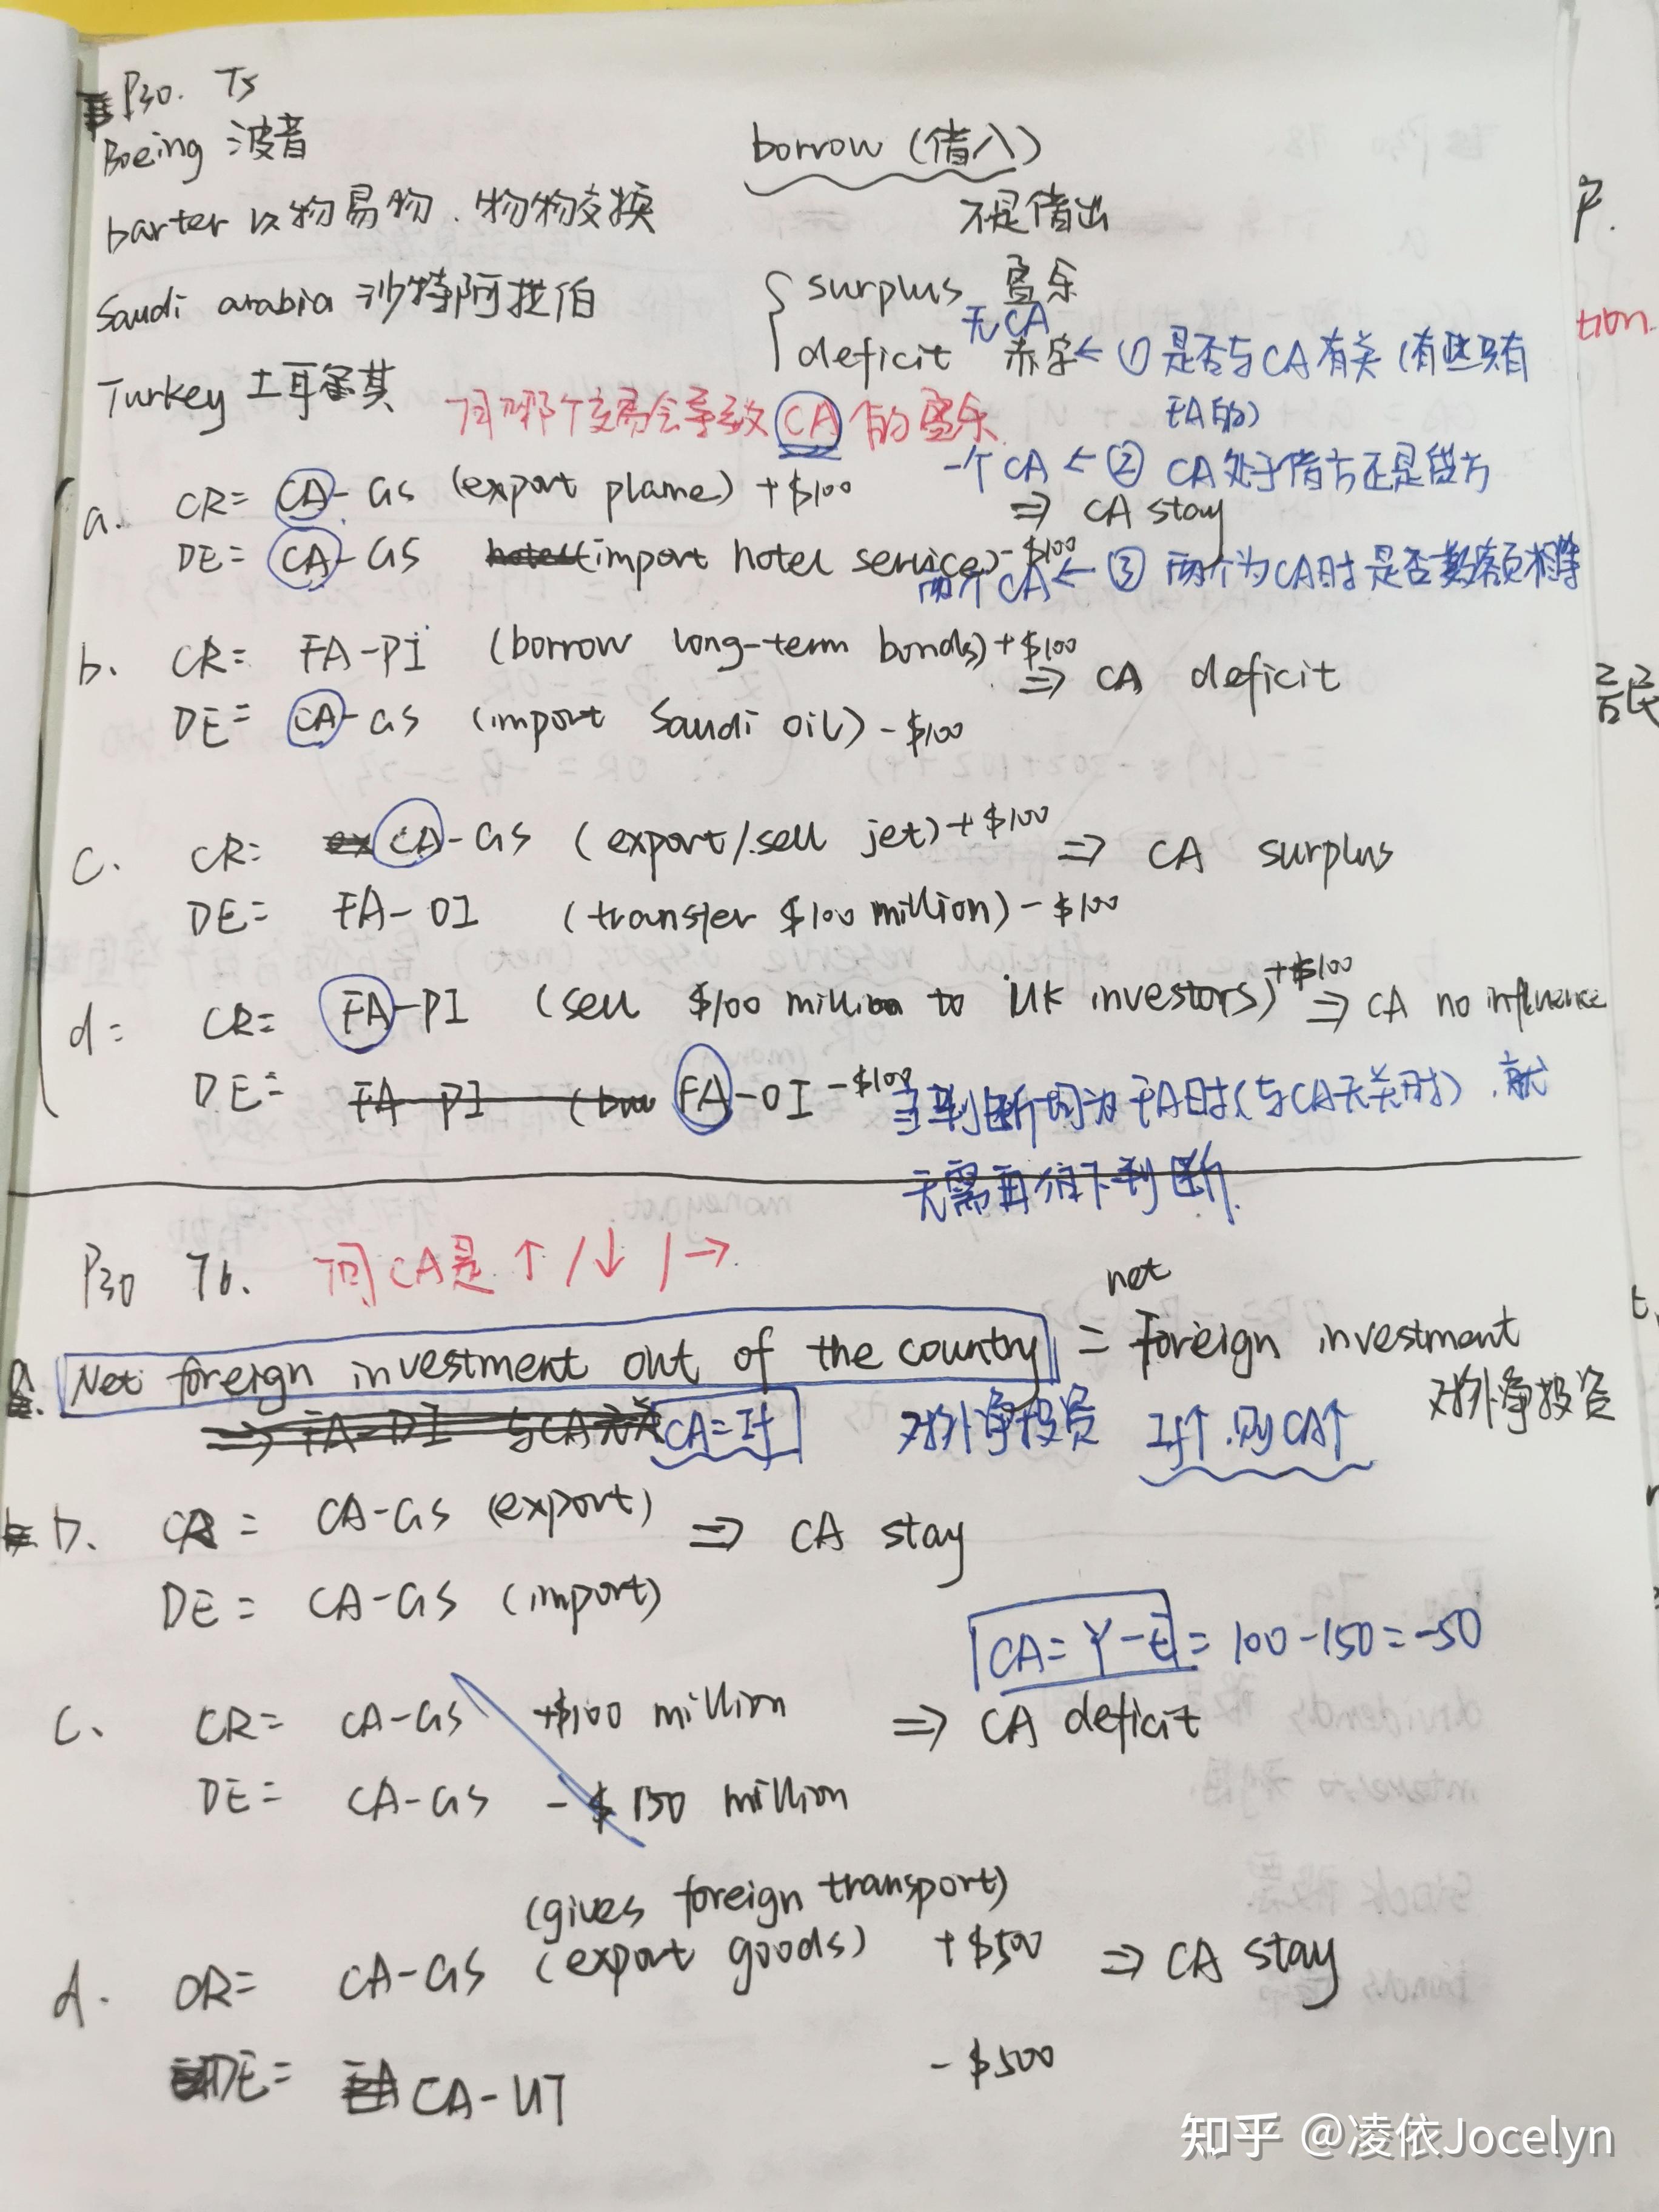 P30. T5
Boeing 波音
barter 以物易物. 物物交换
Saudi arabia 沙特阿拉伯
Turkey 土耳其
borrow (借入)
不是借出
surplus 盈余
无CA
deficit 赤字 ← ① 是否与CA有关 (有些只有
FA的)
问哪个交易会导致 CA 的盈余
一个CA ← ② CA处于借方还是贷方
a. CR= CA-GS (export plane) +$100
⇒ CA stay
DE= CA-GS (import hotel service) -$100
两个CA ← ③ 两个为CA时是否数额相等
b. CR= FA-PI (borrow long-term bonds) +$100
⇒ CA deficit
DE= CA-GS (import Saudi oil) -$100
c. CR: CA-GS (export/sell jet) +$100 ⇒ CA surplus
DE= FA-OI (transfer $100 million) -$100
d= CR= FA-PI (sell $100 million to UK investors) +$100 ⇒ CA no influence
DE= FA-OI -$100
当判断均为FA时(与CA无关时), 就
无需再往下判断.
P30 T6. 问CA是 ↑ / ↓ / →
a. Net foreign investment out of the country = net foreign investment
CA=If 对外净投资 If↑, 则CA↑ 对外净投资
b. CR = CA-GS (export) ⇒ CA stay
DE = CA-GS (import)
CA= Y-E = 100-150=-50
c. CR= CA-GS +$100 million ⇒ CA deficit
DE= CA-GS -$150 million
(gives foreign transport)
d. CR= CA-GS (export goods) +$500 ⇒ CA stay
DE= CA-UT -$500
P.
tion.
知乎 @凌依Jocelyn